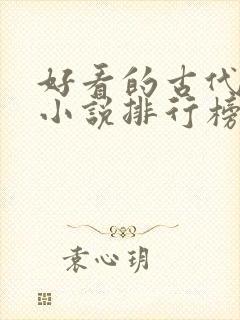 好看的古代
小说排行榜
袁心玥